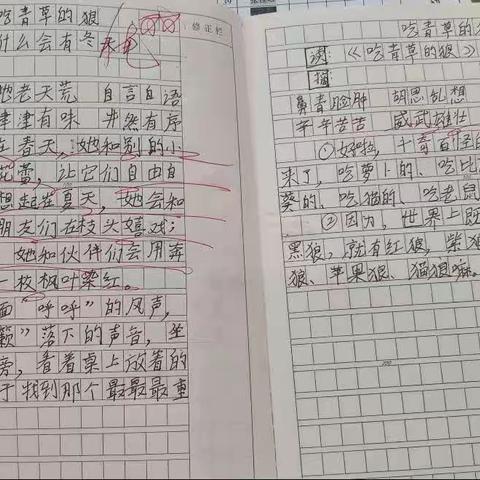 吃青草的狼
什么会有冬
修正栏
地老天荒 自言自语
津津有味 井然有序
在春天,她和别的小
花蕾,让它们自由自
想起在夏天,她会和
朋友们在枝头嬉戏;
她和伙伴们会用奔
一枚枫叶染红。
面"呼呼"的风声,
簌"落下的声音,坐
旁,看着桌上放着的
于找到那个最最最重
吃青草的
读:《吃青草的狼》
摘
鼻青脸肿 胡思乱想
辛辛苦苦 威武雄壮
来了,吃萝卜的、吃
葵的、吃猫的、吃老鼠
②因为,世界上既
黑狼,就有红狼,紫狼
狼、苹果狼、猫狼嘛。